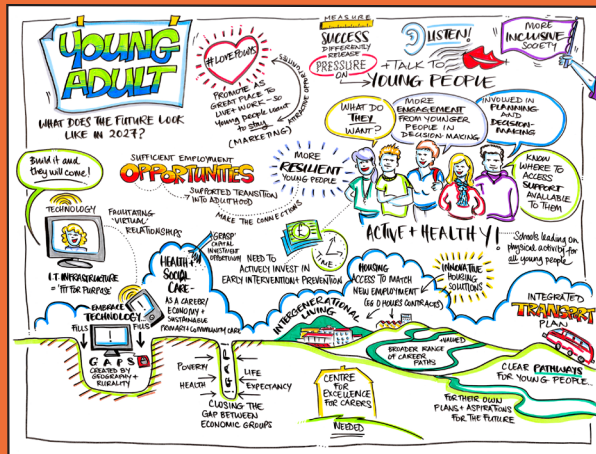 YOUNG
ADULT
WHAT DOES THE FUTURE LOOK
LIKE IN 2027?
#LOVEPOWYS
PROMOTE AS
GREAT PLACE TO
LIVE + WORK - SO
Young people want
to stay
(MARKETING)
ATTRACTIVE OPPORTUNITIES
MEASURE
SUCCESS
DIFFERENTLY
RELEASE
PRESSURE
ON
LISTEN!
+ TALK TO
YOUNG PEOPLE
MORE
INCLUSIVE
SOCIETY
WHAT DO
THEY
WANT?
MORE
ENGAGEMENT
FROM YOUNGER
PEOPLE IN
DECISION-MAKING
INVOLVED IN
PLANNING
AND
DECISION-
MAKING
KNOW
WHERE TO
ACCESS
SUPPORT
AVAILABLE
TO THEM
Build it and
they will come!
SUFFICIENT EMPLOYMENT
OPPORTUNITIES
SUPPORTED TRANSITION
INTO ADULTHOOD
MAKE THE CONNECTIONS
MORE
RESILIENT
YOUNG PEOPLE
TECHNOLOGY
FACILITATING
'VIRTUAL'
RELATIONSHIPS
I.T. INFRASTRUCTURE
= 'FIT FOR PURPOSE'
ACTIVE + HEALTHY!
Schools leading on
physical activity for
all young people
HEALTH +
SOCIAL
CARE -
AS A CAREER/
ECONOMY +
SUSTAINABLE
PRIMARY + COMMUNITY CARE
GRASP
CAPITAL
INVESTMENT
OPPORTUNITIES
£
TIME
NEED TO
ACTIVELY INVEST IN
EARLY INTERVENTION + PREVENTION
HOUSING
ACCESS TO MATCH
NEW EMPLOYMENT
(EG 0 HOURS CONTRACTS)
INNOVATIVE
HOUSING
SOLUTIONS
INTEGRATED
TRANSPORT
PLAN
EMBRACE
TECHNOLOGY
FILLS
FILLS
GAPS
CREATED BY
GEOGRAPHY +
RURALITY
POVERTY
HEALTH
GAP
LIFE
EXPECTANCY
CLOSING THE
GAP BETWEEN
ECONOMIC GROUPS
INTERGENERATIONAL
LIVING
CENTRE
FOR
EXCELLENCE
FOR CARERS
NEEDED
+VALUED
BROADER RANGE
OF CAREER
PATHS
CLEAR PATHWAYS
FOR YOUNG PEOPLE...
FOR THEIR OWN
PLANS + ASPIRATIONS
FOR THE FUTURE